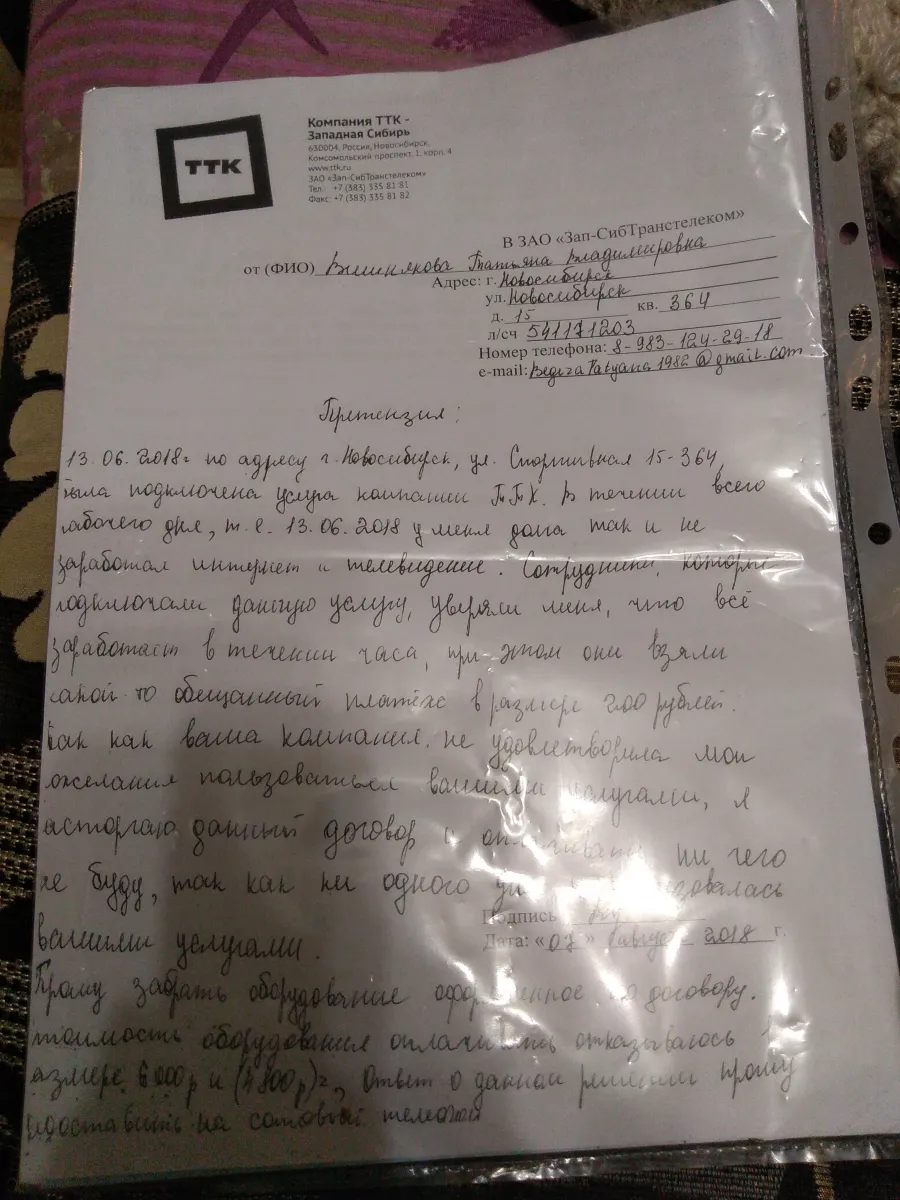 ТТК
Компания ТТК -
Западная Сибирь
630004, Россия, Новосибирск,
Комсомольский проспект, 1, корп. 4
www.ttk.ru
ЗАО «Зап-СибТранстелеком»
Тел.: +7 (383) 335 81 81
Факс: +7 (383) 335 81 82
В ЗАО «Зап-СибТранстелеком»
от (ФИО) Вишнякова Татьяна Владимировна
Адрес: г. Новосибирск
ул. Новосибирск
д. 15 кв. 364
л/сч 541171203
Номер телефона: 8-983-124-29-18
e-mail: 1982@gmail.com
Претензия:
13.06.2018г по адресу г. Новосибирск, ул. Спортивная 15-364,
была подключена услуга компании ТТК. В течении всего
рабочего дня, т.е. 13.06.2018 у меня дома так и не
заработал интернет и телевидение. Сотрудники, которые
подключали данную услугу, уверяли меня, что всё
заработает в течении часа, при этом они взяли
какой то обещанный платёж в размере 200 рублей.
Так как ваша компания не удовлетворила мои
желания пользоваться вашими услугами, я
асторгаю данный договор и оплачивать ни чего
не буду, так как ни одного пользовалась
вашими услугами.
Подпись
Дата: «07» август 2018 г.
Прошу забрать оборудование оформленное по договору.
стоимость оборудования оплачивать отказываюсь
азмере 6000р и (4800р) Ответ о данном решении прошу
предоставить на сотовый телефон